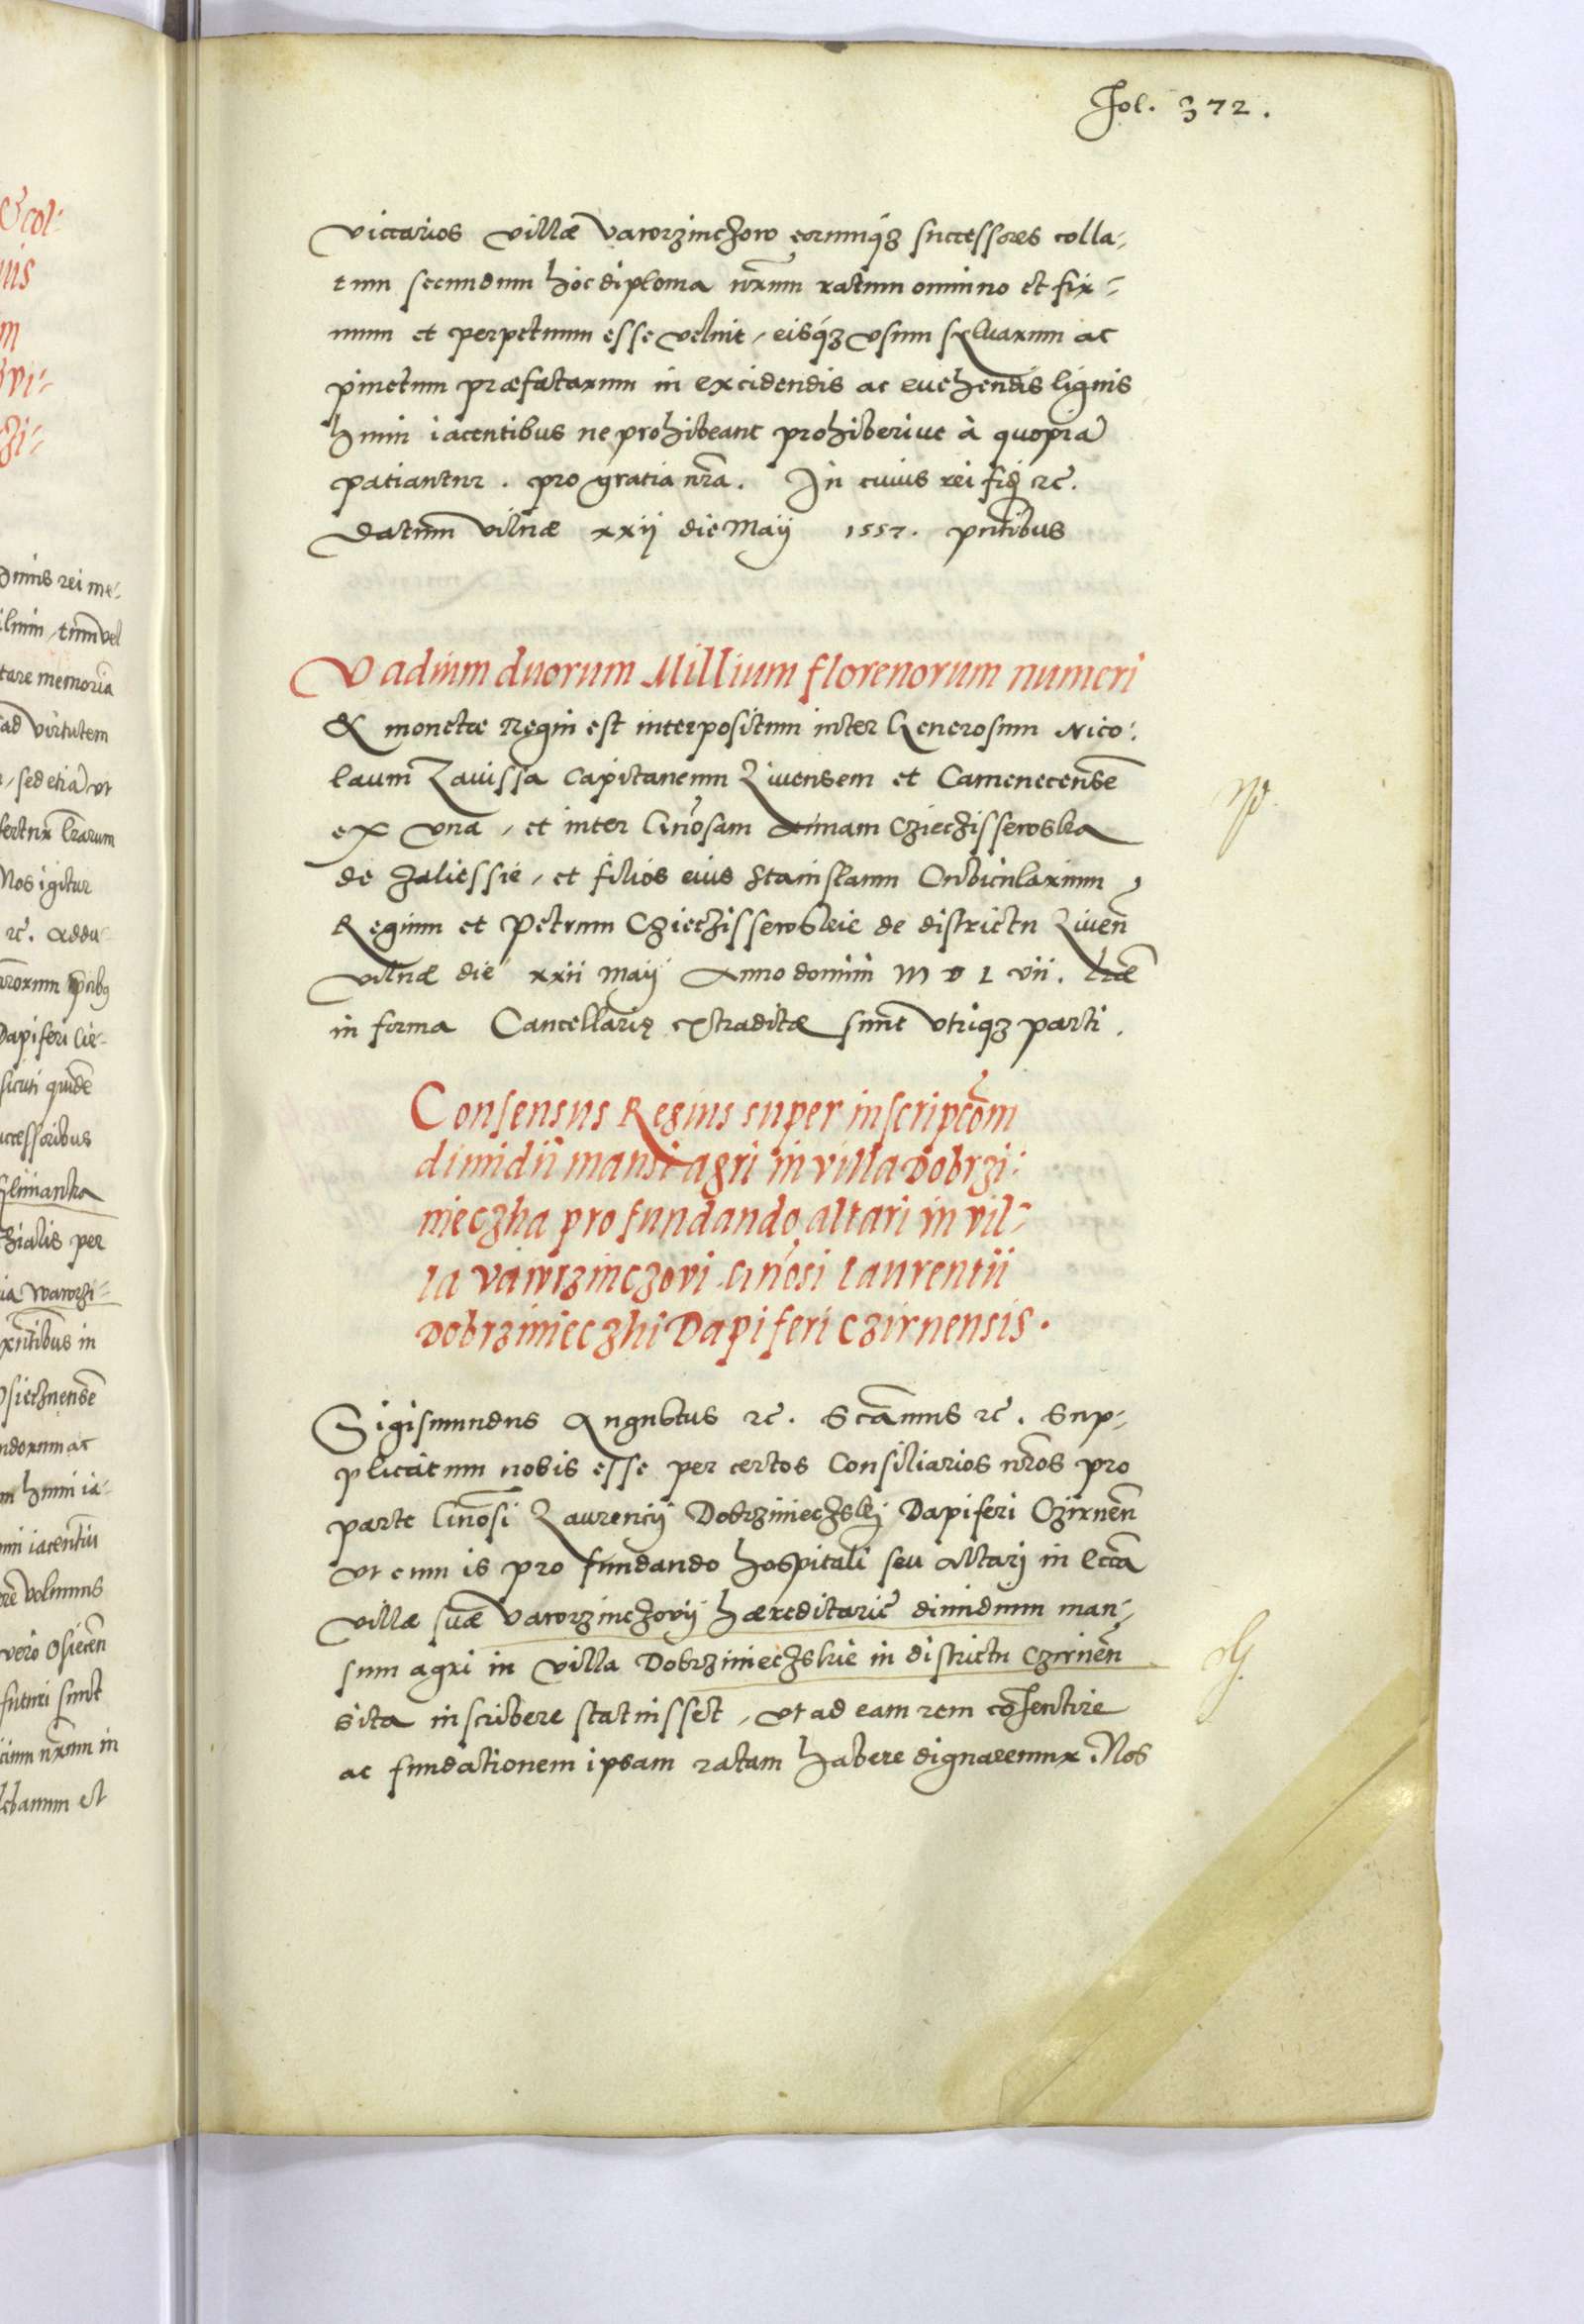 Fol. 372.
viccarios villæ Vawrzinchow eorumq́ȝ successores colla-
tum secundum hoc diploma nr̃um ratum omnino et fir-
mum et perpetuum esse velint, eisq́ȝ vsum syluarum ac
pinetum præfatarum in excidendis ac euehendis lignis
humi iacentibus ne prohibeant prohiberiue à quopiã
patiantur. pro gratia nr̃a. In cuius rei fid̃ ꝛc̃.
Datum Vilnæ xxij die Maij 1557. pñtibus
Vadium duorum Millium florenorum numeri
& monetæ Regni est interpositum inter Generosum Nico-
laum Zauissa Capitaneum Liuensem et Camenecensẽ
ex vna, et inter Gñosam Annam Cziechissewska
de Zaliessie, et filios eius Stanislaum Cubicularium
Regium et Petrum Cziechissewskie de districtu Liueñ
Vilnæ die xxii maij Anno domini M D L vii. lr̃æ
in forma Cancellarię extraditæ sunt vtriqȝ parti.
Consensus Regius super inscripcõm
dimidii mansi agri in villa Dobrzi-
nieczha pro fundando altari in vil-
la Vawrzinczovi Gñosi Laurentii
Dobrzinieczhi Dapiferi Czirnensis.
Sigismundus Augustus ꝛc̃. S cãmus ꝛc̃. Sup-
plicatum nobis esse per certos Consiliarios nr̃os pro
parte Gñosi Laurencij Dobrziniechskij Dapiferi Czirneñ
vt cum is pro fundando hospitali seu altarj in Eccã
villæ suæ Vawrzinchovij hæreditariẽ dimidium man-
sum agri in villa Dobrziniechskie in districtu Czirneñ
sita inscribere statuisset, vt ad eam rem cõsentire
ac fundationem ipsam ratam habere dignaremur. Nos